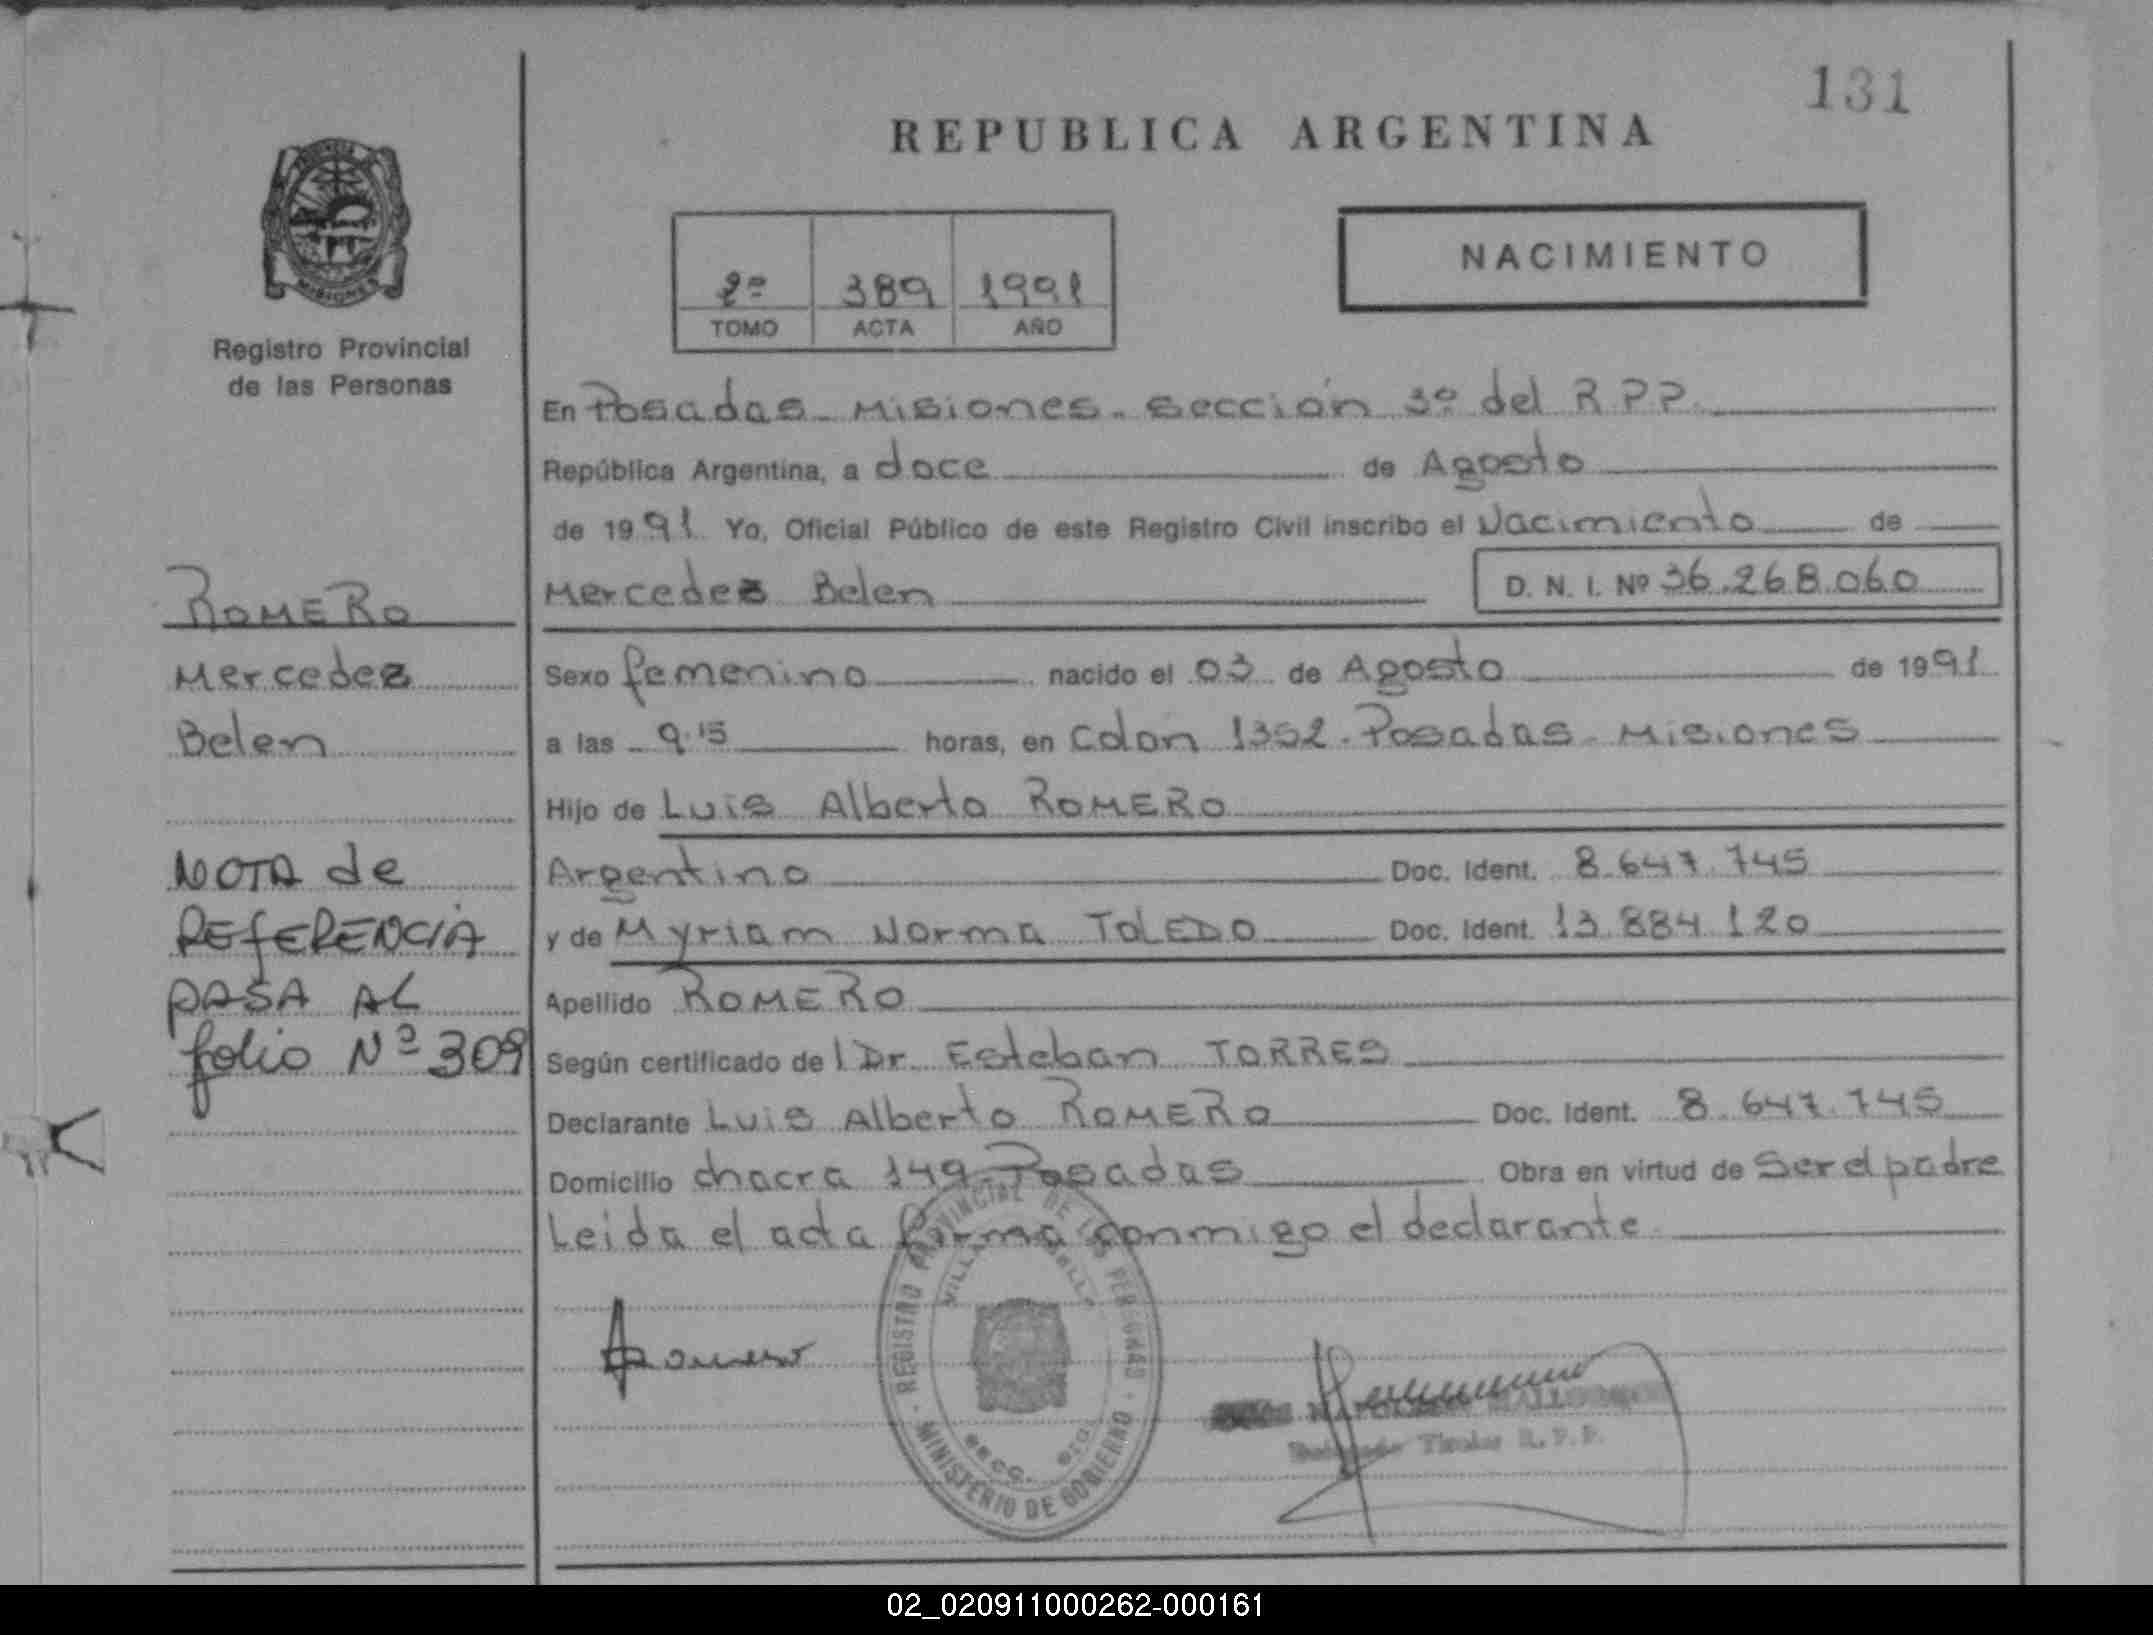 131
REPUBLICA ARGENTINA
NACIMIENTO
2º 389 1991
TOMO ACTA AÑO
MISIONES
Registro Provincial
de las Personas
En Posadas - Misiones - sección 3º del R.P.P.
República Argentina, a doce de Agosto
de 1991 Yo, Oficial Público de este Registro Civil inscribo el Nacimiento de
Mercedez Belen D. N. I. Nº 36.268.060
ROMERO
Mercedez
Belen
Sexo femenino nacido el 03 de Agosto de 1991
a las 9.15 horas, en Colon 1352 - Posadas - Misiones
Hijo de Luis Alberto ROMERO
Argentino Doc. Ident. 8.647.745
y de Myriam Norma TOLEDO Doc. Ident. 13.884.120
Apellido ROMERO
Según certificado de l Dr. Esteban TORRES
Declarante Luis Alberto ROMERO Doc. Ident. 8.647.745
Domicilio chacra 149 - Posadas Obra en virtud de Ser el padre
Leida el acta firma conmigo el declarante
NOTA de
REFERENCIA
PASA AL
folio Nº 309
REGISTRO PROVINCIAL DE LAS PERSONAS
MINISTERIO DE GOBIERNO
Titular R.P.P.
02_020911000262-000161